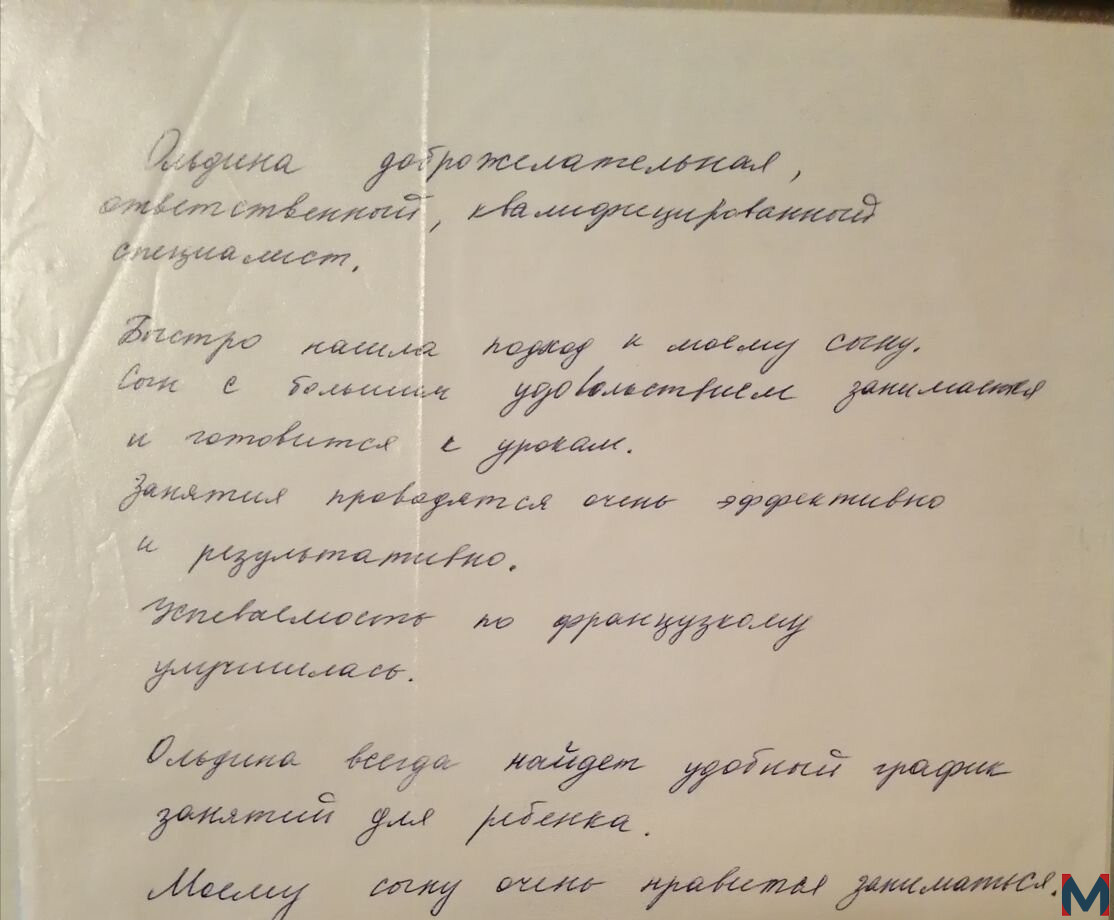 Ольдина доброжелательная,
ответственный, квалифицированный
специалист.
Быстро нашла подход к моему сыну.
Сын с большим удовольствием занимается
и готовится к урокам.
Занятия проводятся очень эффективно
и результативно.
Успеваемость по французкому
улучшилась.
Ольдина всегда найдет удобный график
занятий для ребенка.
Моему сыну очень нравится заниматься.
M